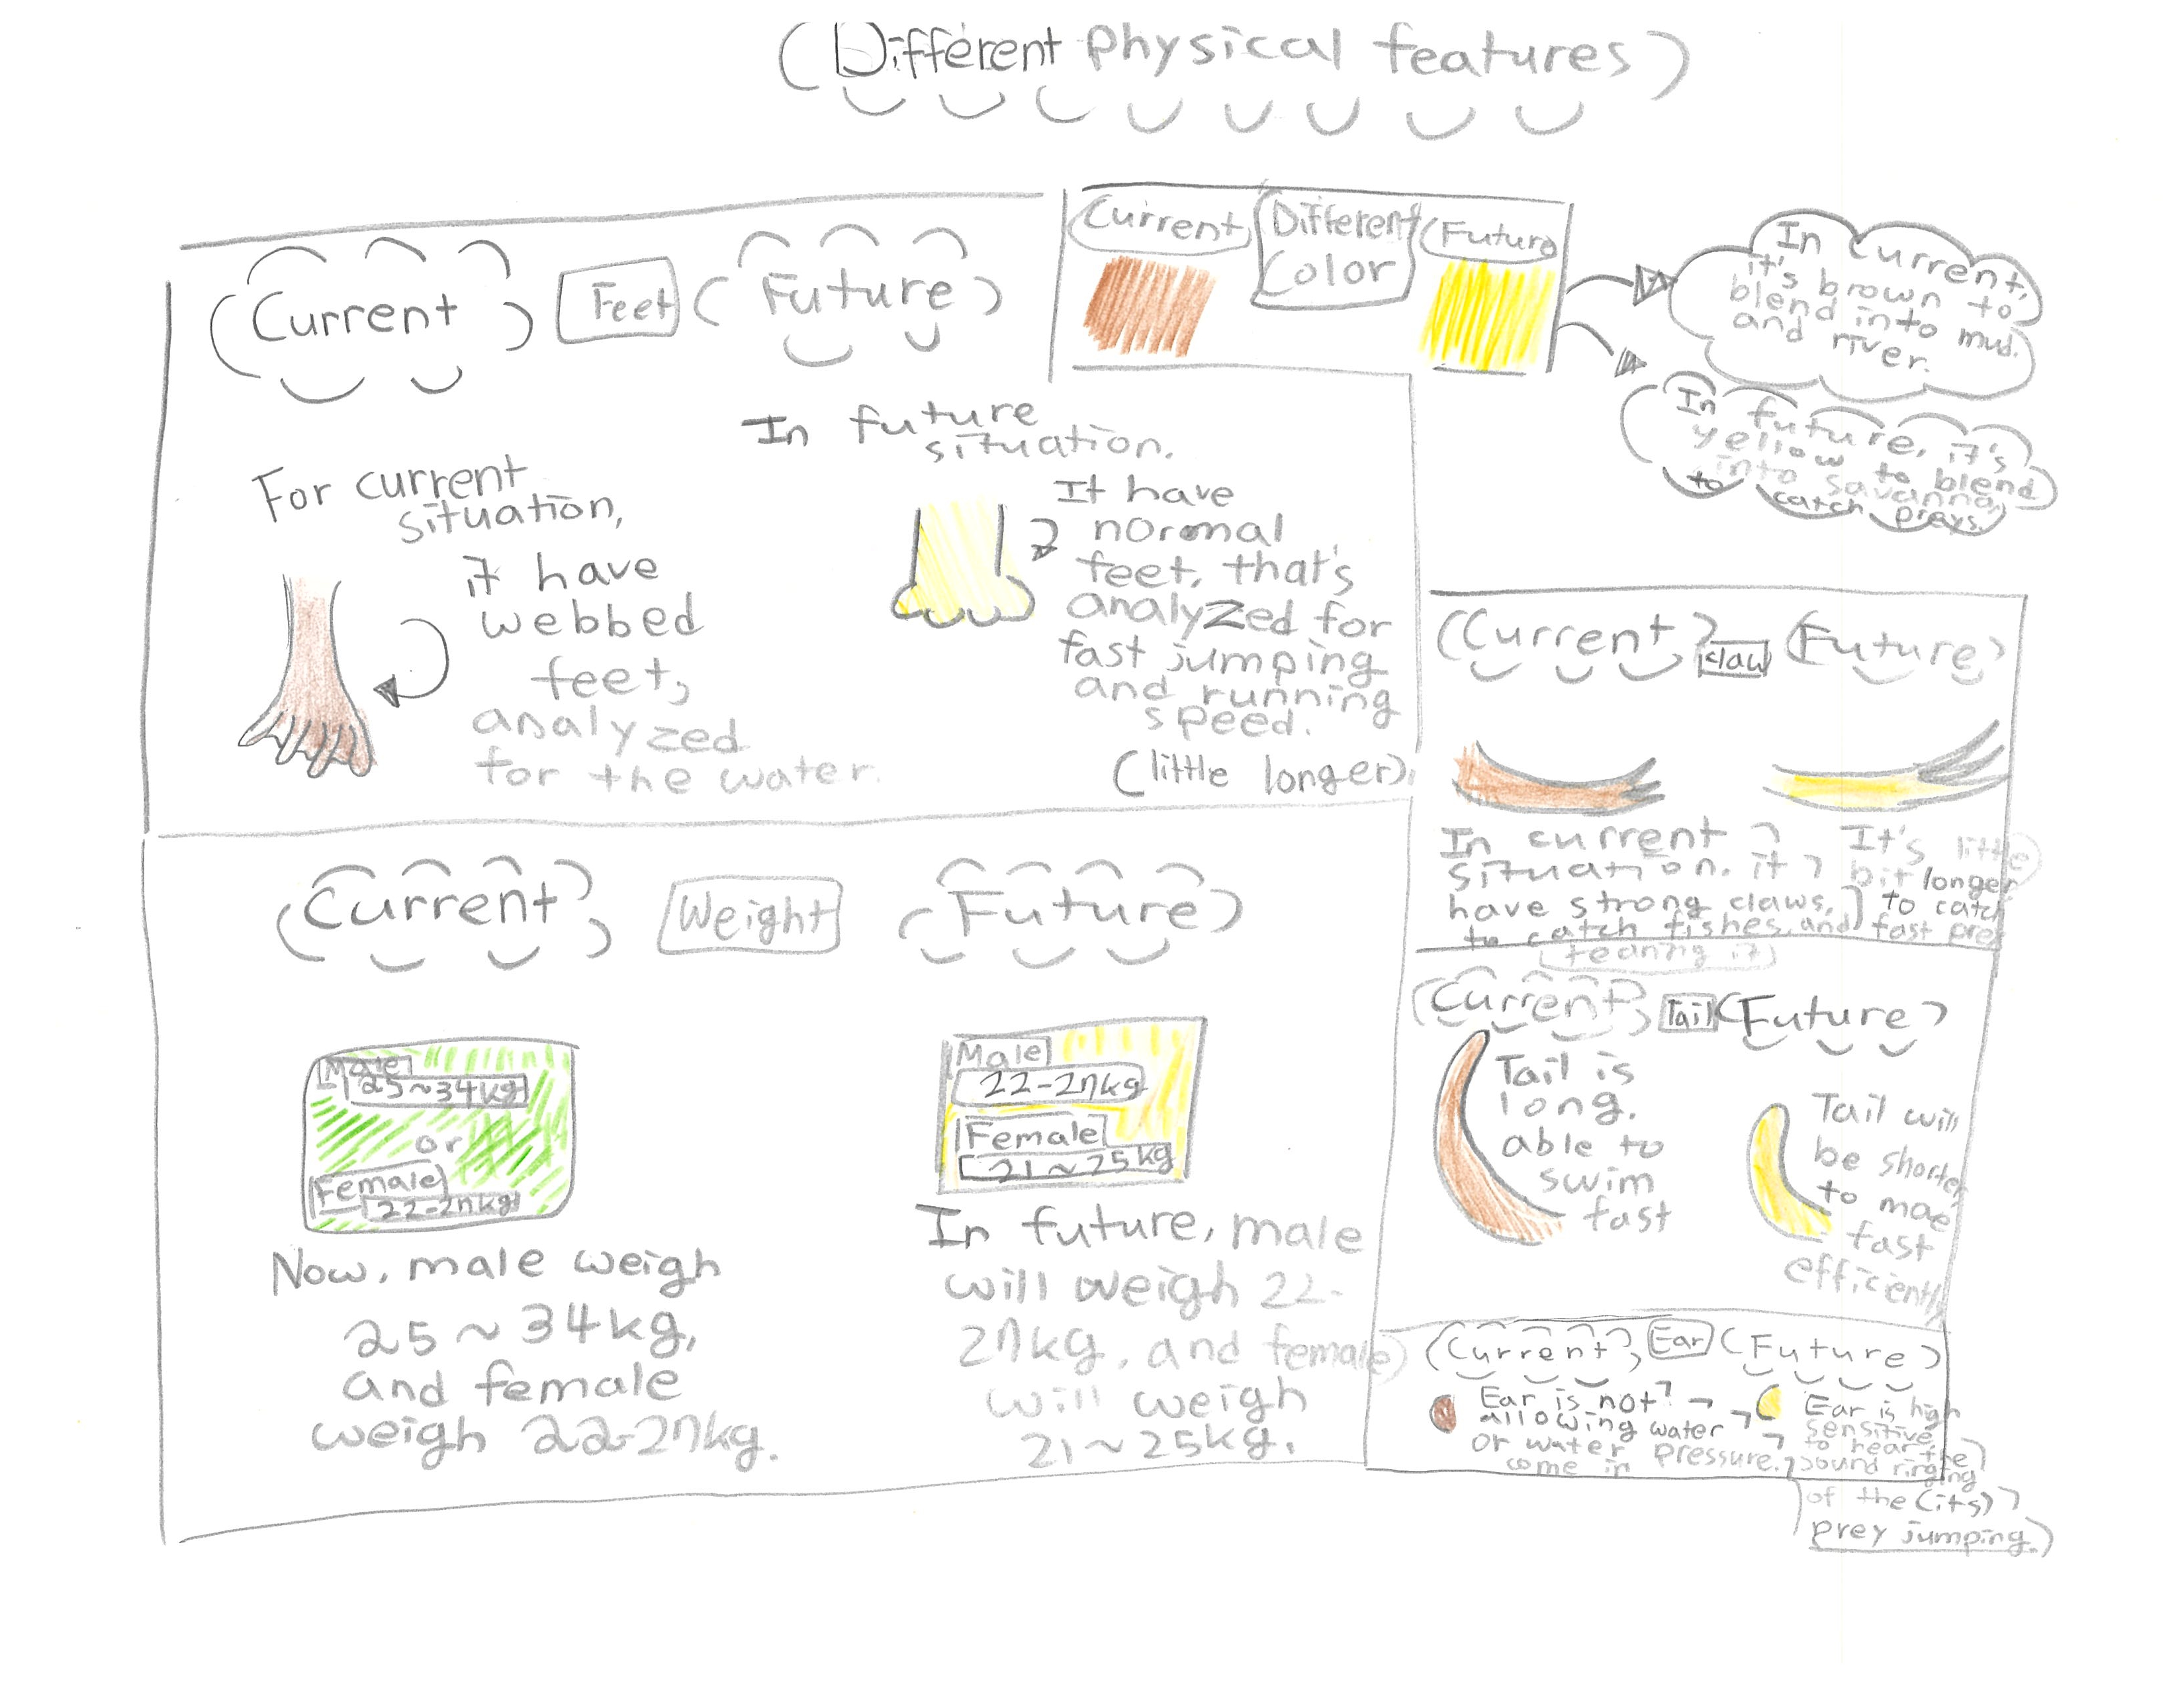 (Different physical features)
(Current) Feet (Future)
For current
situation,
it have
webbed
feet,
analyzed
for the water.
In future
situation.
It have
normal
feet, that's
analyzed for
fast jumping
and running
speed.
(little longer).
Current Different Color Future
In current,
it's brown to
blend into mud.
and river.
In future, it's
yellow to blend
into savanna,
to catch preys.
(Current) claw (Future)
In current
situation. it
have strong claws,
to catch fishes, and
tearing it
It's little
bit longer
to catch
fast prey
(Current) Weight (Future)
Male
25~34kg
or
Female
22-27kg
Now, male weigh
25~34kg,
and female
weigh 22-27kg.
Male
22-27kg
Female
21~25kg
In future, male
will weigh 22-
27kg, and female
will weigh
21~25kg.
(Current) Tail (Future)
Tail is
long.
able to
swim
fast
Tail will
be shorter
to
fast
efficiently
(Current) Ear (Future)
Ear is not
allowing water
or water pressure.
come in
Ear is high
sensitive
to hear the
sound ringing
of the (its)
prey jumping.